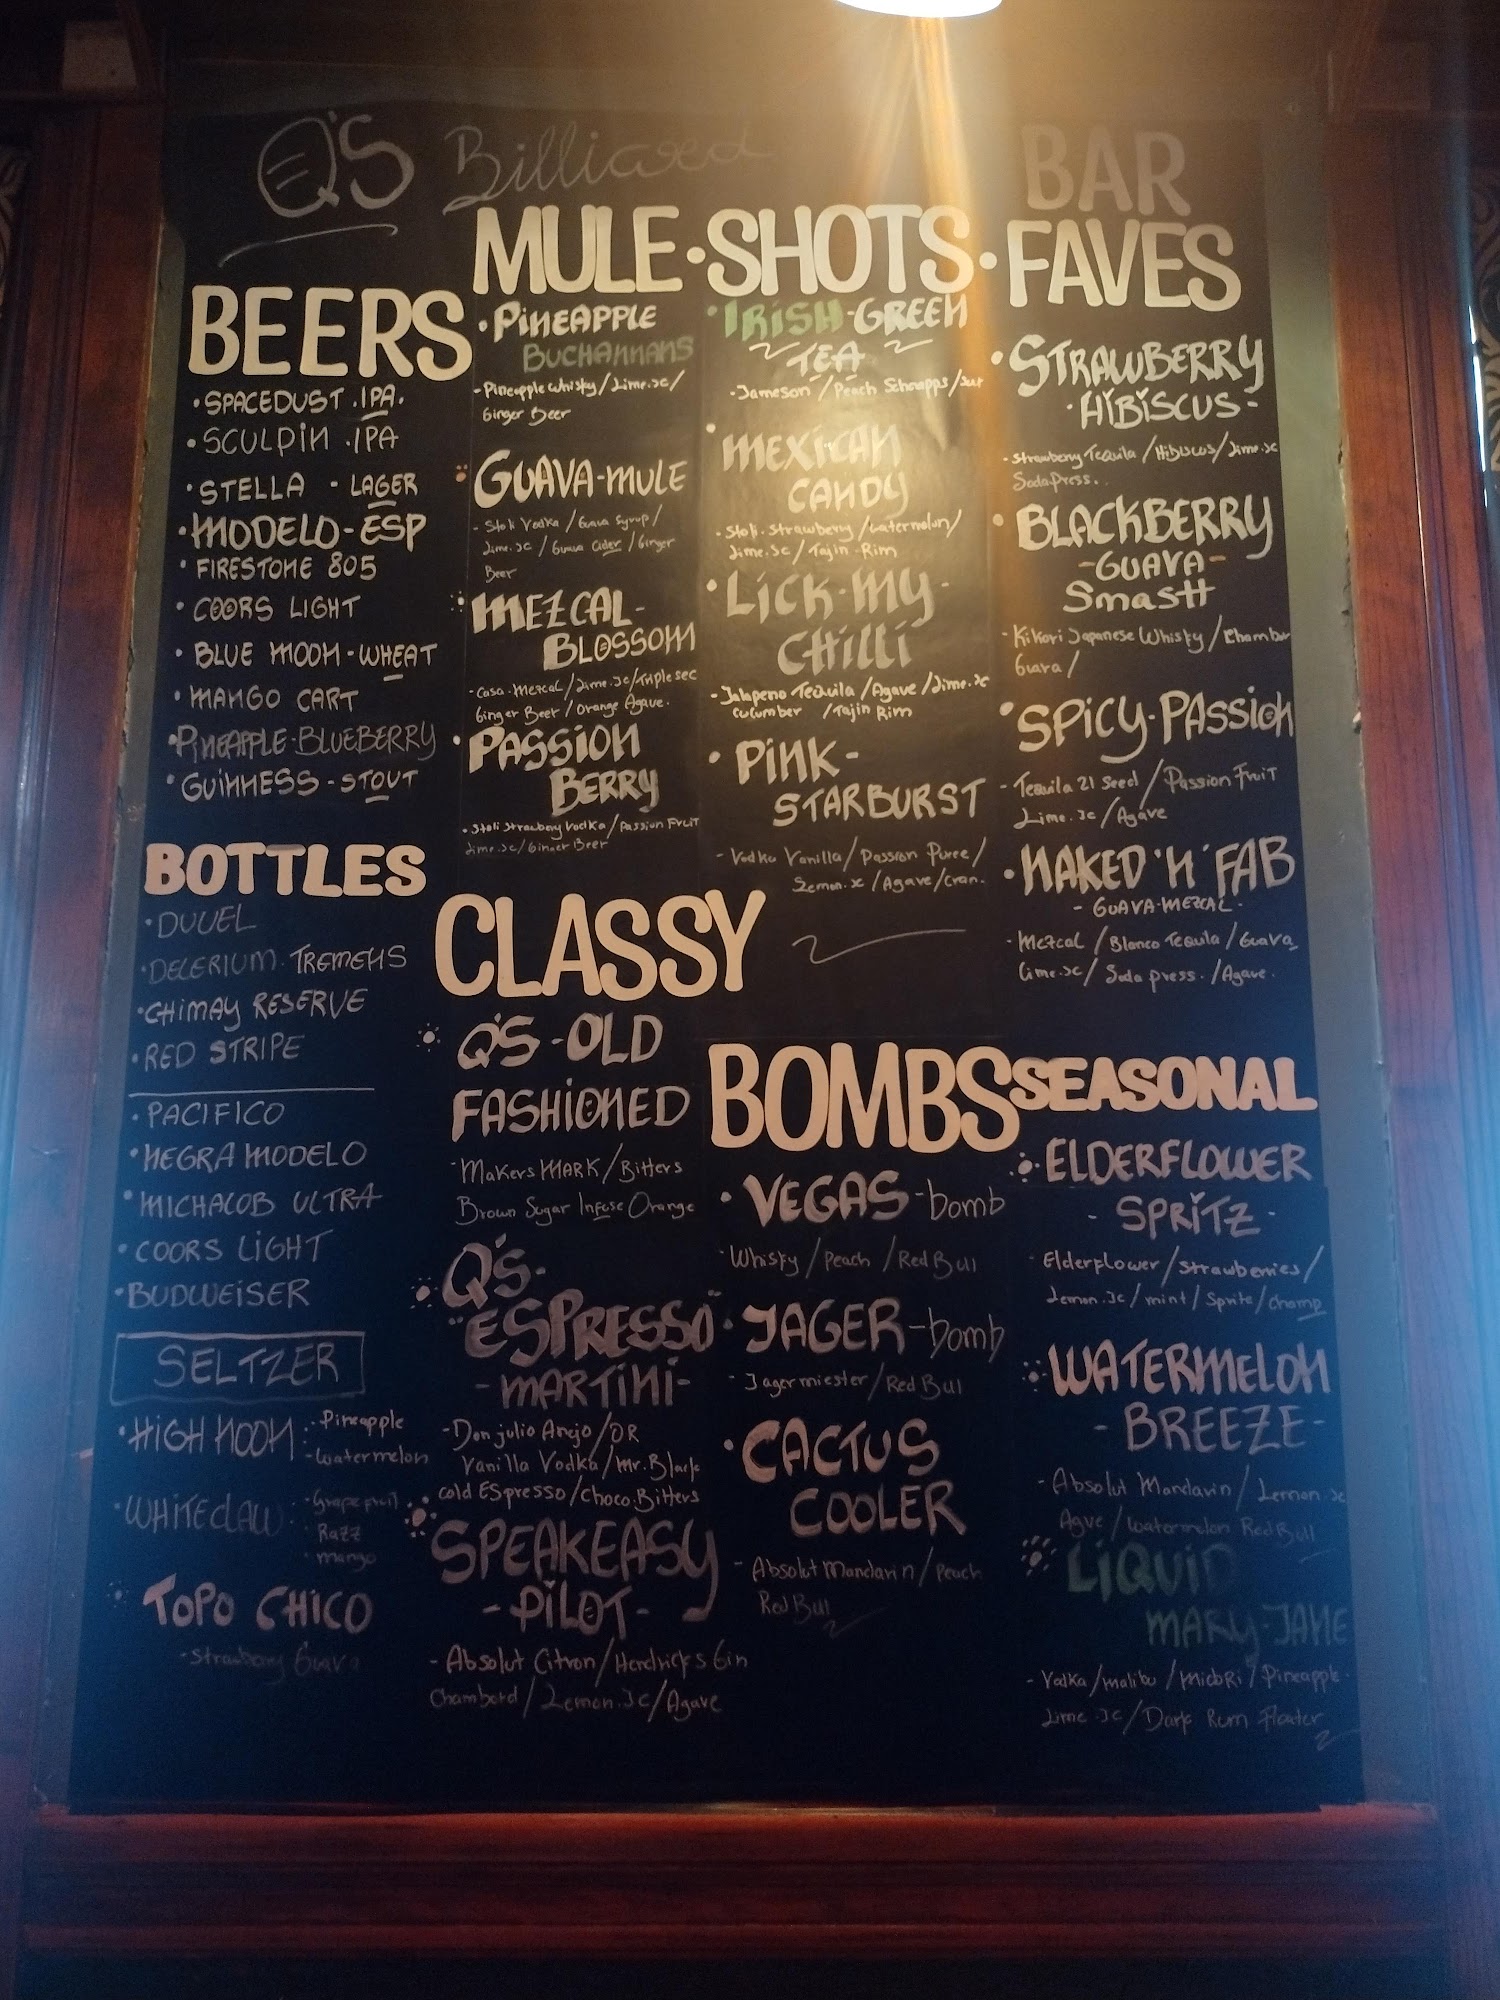 Q'S Billiard
BEERS
• SPACEDUST .IPA.
• SCULPIN .IPA
• STELLA - LAGER
• MODELO-ESP
• FIRESTONE 805
• COORS LIGHT
• BLUE MOON-WHEAT
• MANGO CART
• PINEAPPLE-BLUEBERRY
• GUINNESS-STOUT
BOTTLES
• DUVEL
• DELERIUM.TREMENS
• CHIMAY RESERVE
• RED STRIPE
• PACIFICO
• NEGRA MODELO
• MICHALOB ULTRA
• COORS LIGHT
• BUDWEISER
SELTZER
• HIGH NOON :- Pineapple
- watermelon
• WHITECLAW : - Grapefruit
• Razz
• mango
TOPO CHICO
- Strawberry Guava
MULE
• PINEAPPLE
BUCHANNANS
- Pineapple whisky/Lime.Jc/
Ginger Beer
GUAVA-MULE
- Stoli Vodka/Guava Syrup/
Lime.Jc/Guava Cider/Ginger
Beer
MEZCAL-
BLOSSOM
- Casa-Mezcal/Lime.Jc/Triple sec
Ginger Beer/Orange Agave.
• PASSION
BERRY
• Stoli Strawberry Vodka/Passion Fruit
Lime.Jc/Ginger Beer
CLASSY
Q'S-OLD
FASHIONED
- Makers MARK/Bitters
Brown Sugar Infuse Orange
Q'S-
"ESPRESSO"
-MARTINI-
- Don julio Anejo/OR
Vanilla Vodka/Mr.Black
cold ESpresso/Choco.Bitters
SPEAKEASY
-PILOT-
- Absolut Citron/Hendricks Gin
Chambord/Lemon.Jc/Agave
• SHOTS •
• IRISH-GREEN
TEA
- Jameson/Peach Schnapps/
• MEXICAN
CANDY
- Stoli-Strawberry/watermelon/
Lime.Jc/Tajin-Rim
• Lick-MY-
CHilli
- Jalapeno Tequila/Agave/Lime.Jc
cucumber /Tajin Rim
• PINK-
STARBURST
- Vodka Vanilla/Passion Puree/
Lemon.Jc/Agave/Cran.
BOMBS
• VEGAS-bomb
- Whisky/Peach/Red Bull
• JAGER-bomb
- Jagermiester/Red Bull
• CACTUS
COOLER
- Absolut Mandarin/Peach
Red Bull
BAR
FAVES
• STRAWBERRY
-HIBISCUS-
- Strawberry Tequila/Hibiscus/Lime.Jc
Soda Press.
• BLACKBERRY
-GUAVA-
SmasH
- Kikori Japanese Whisky/Chambor
Guava/
• SPICY-PASSION
- Tequila 21 Seed/Passion Fruit
Lime.Jc/Agave
• NAKED 'N' FAB
- GUAVA-MEZCAL-
- Mezcal/Blanco Tequila/Guava
Lime.Jc/Soda press./Agave.
SEASONAL
ELDERFLOWER
- SPRITZ -
- Elderflower/strawberries/
Lemon.Jc/mint/Sprite/champ
WATERMELON
- BREEZE-
- Absolut Mandarin/Lemon.Jc
Agve/Watermelon RedBull
LIQUID
MARY-JANE
- Vodka/Malibu/MidoRi/Pineapple
Lime.Jc/Dark Rum Floater